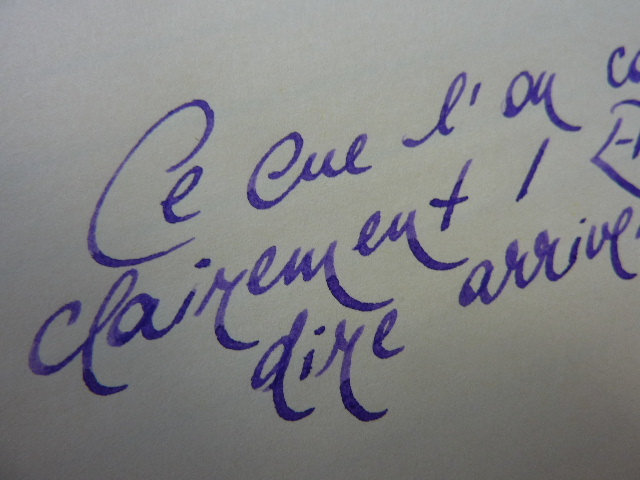 Ce cue l'on co
clairement /
dire arrive